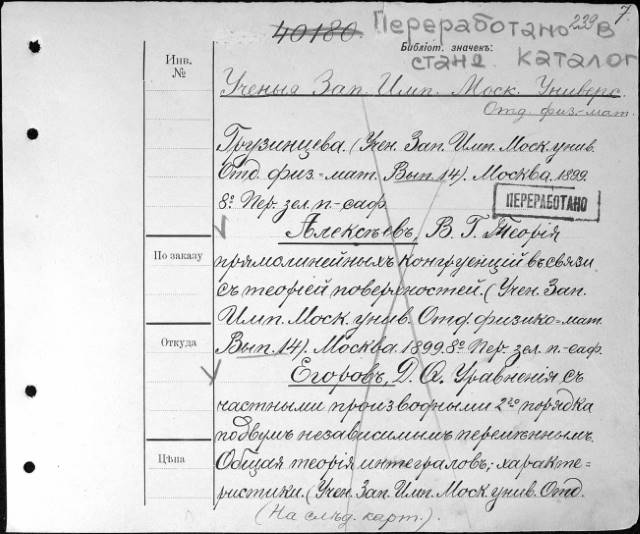 40180. Переработано 239 в 7.
Библіот. значекъ:
стане. каталог
Инв. №
Ученыя Зап. Имп. Моск. Универс.
Отд. физ.-мат.
Грузинцева. (Учен. Зап. Имп. Моск. унив.
Отд. физ.-мат. Вып. 14). Москва. 1899.
8º. Пер. зел. п.-саф.
ПЕРЕРАБОТАНО
Алексѣевъ, В. Г. Теорія
По заказу
прямолинейныхъ конгруенцій въ связи
съ теоріей поверхностей. (Учен. Зап.
Имп. Моск. унив. Отд. физико-мат.
Откуда
Вып. 14). Москва. 1899. 8º. Пер. зел. п.-саф.
Егоровъ, Д. Ѳ. Уравненія съ
частными производными 2го порядка
по двумъ независимымъ перемѣннымъ.
Цѣна
Общая теорія интеграловъ; характе=
ристики. (Учен. Зап. Имп. Моск. унив. Отд.
(На слѣд. карт.).